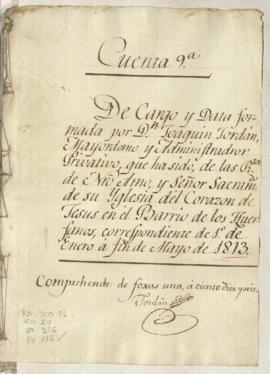 Cuenta 9.a
De Cargo y Data for-
mada por D.n Joaquin Jordán,
Mayordomo y Administrador
Privativo, que ha sido, de las R.tas
de Nro Amo, y Señor Sacram.do
de su Yglesia del Corazon de
Jesus en el Barrio de los Huer-
fanos, correspondiente de 1.o de
Enero á fin de Mayo de 1813.
Comprehende de foxas una, á ciento diez y seis.
Jordán